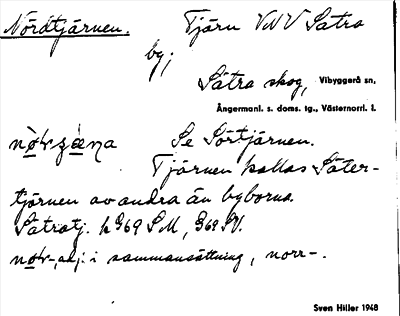 Nordtjärnen. Tjärn VNV Sätra
by;
Sätra skog, Vibyggerå sn,
Ångermanl. s. doms. tg., Västernorrl. l.
Se Sörtjärnen.
Tjärnen kallas Säter-
tjärnen av andra än byborna.
Sätratj. k 369 SM, 369 SV.
adj. i sammansättning, norr-.
Sven Hiller 1948